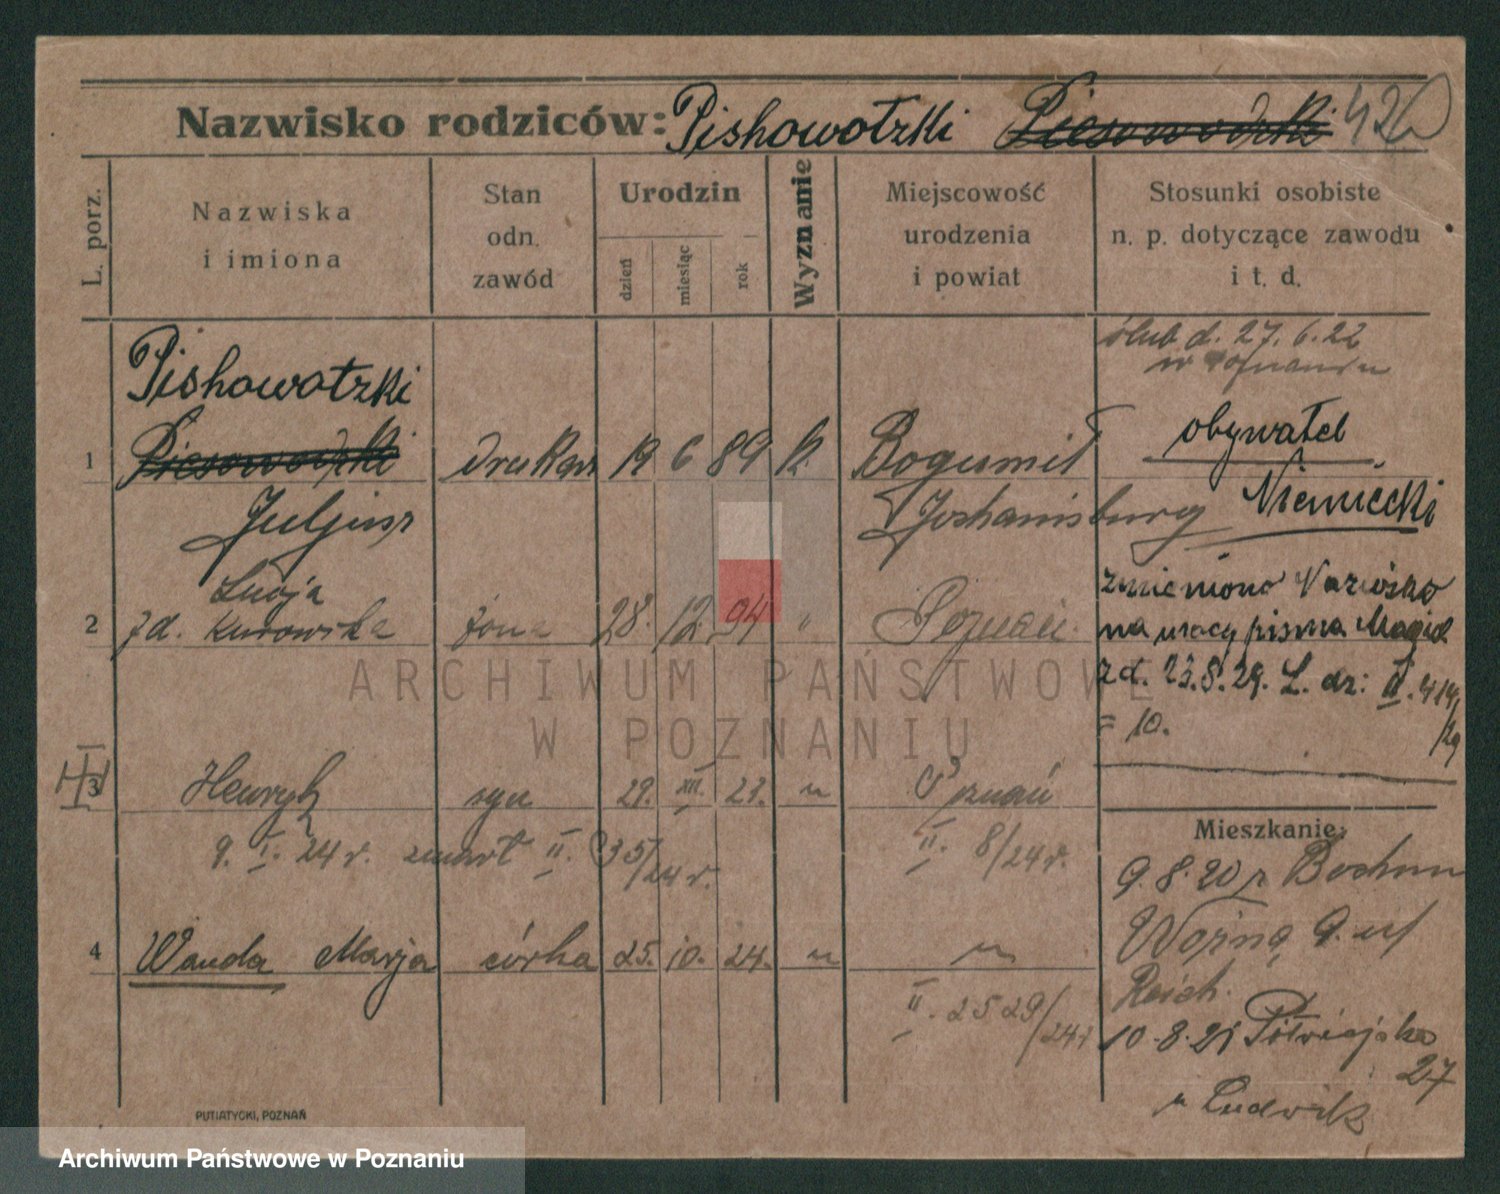 Nazwisko rodziców: Pishowotzki Piesowodzki 420
L. porz.
Nazwiska
i imiona
Stan
odn.
zawód
Urodzin
dzień
miesiąc
rok
Wyznanie
Miejscowość
urodzenia
i powiat
Stosunki osobiste
n. p. dotyczące zawodu
i t. d.
ślub d. 27. 6. 22
w Poznaniu
Pishowotzki
1 Piesowodzki drukarz 19 6 89 k. Bogumił
Juljusz Johanisburg
obywatel
Niemiecki
Łucja
2 zd. Kurowska żona 28. 12. 94 " Poznań
zmieniono Nazwisko
na mocy pisma Magist
z d. 23.8.29. L. dz: II. 414/29
= 10.
ARCHIWUM PAŃSTWOWE
W POZNANIU
3 Henryk syn 29. XII. 23. " Poznań
9. I. 24 r. zmarł II. 35/24 r. II. 8/24 r.
4 Wanda Marja córka 25. 10. 24. " "
II. 2529/24 r
Mieszkanie:
9. 8. 20 z Bochum
Woźna 9. u/
Reich.
10. 8. 21 Półwiejska
27
u Ludwik
PUTIATYCKI, POZNAŃ
Archiwum Państwowe w Poznaniu